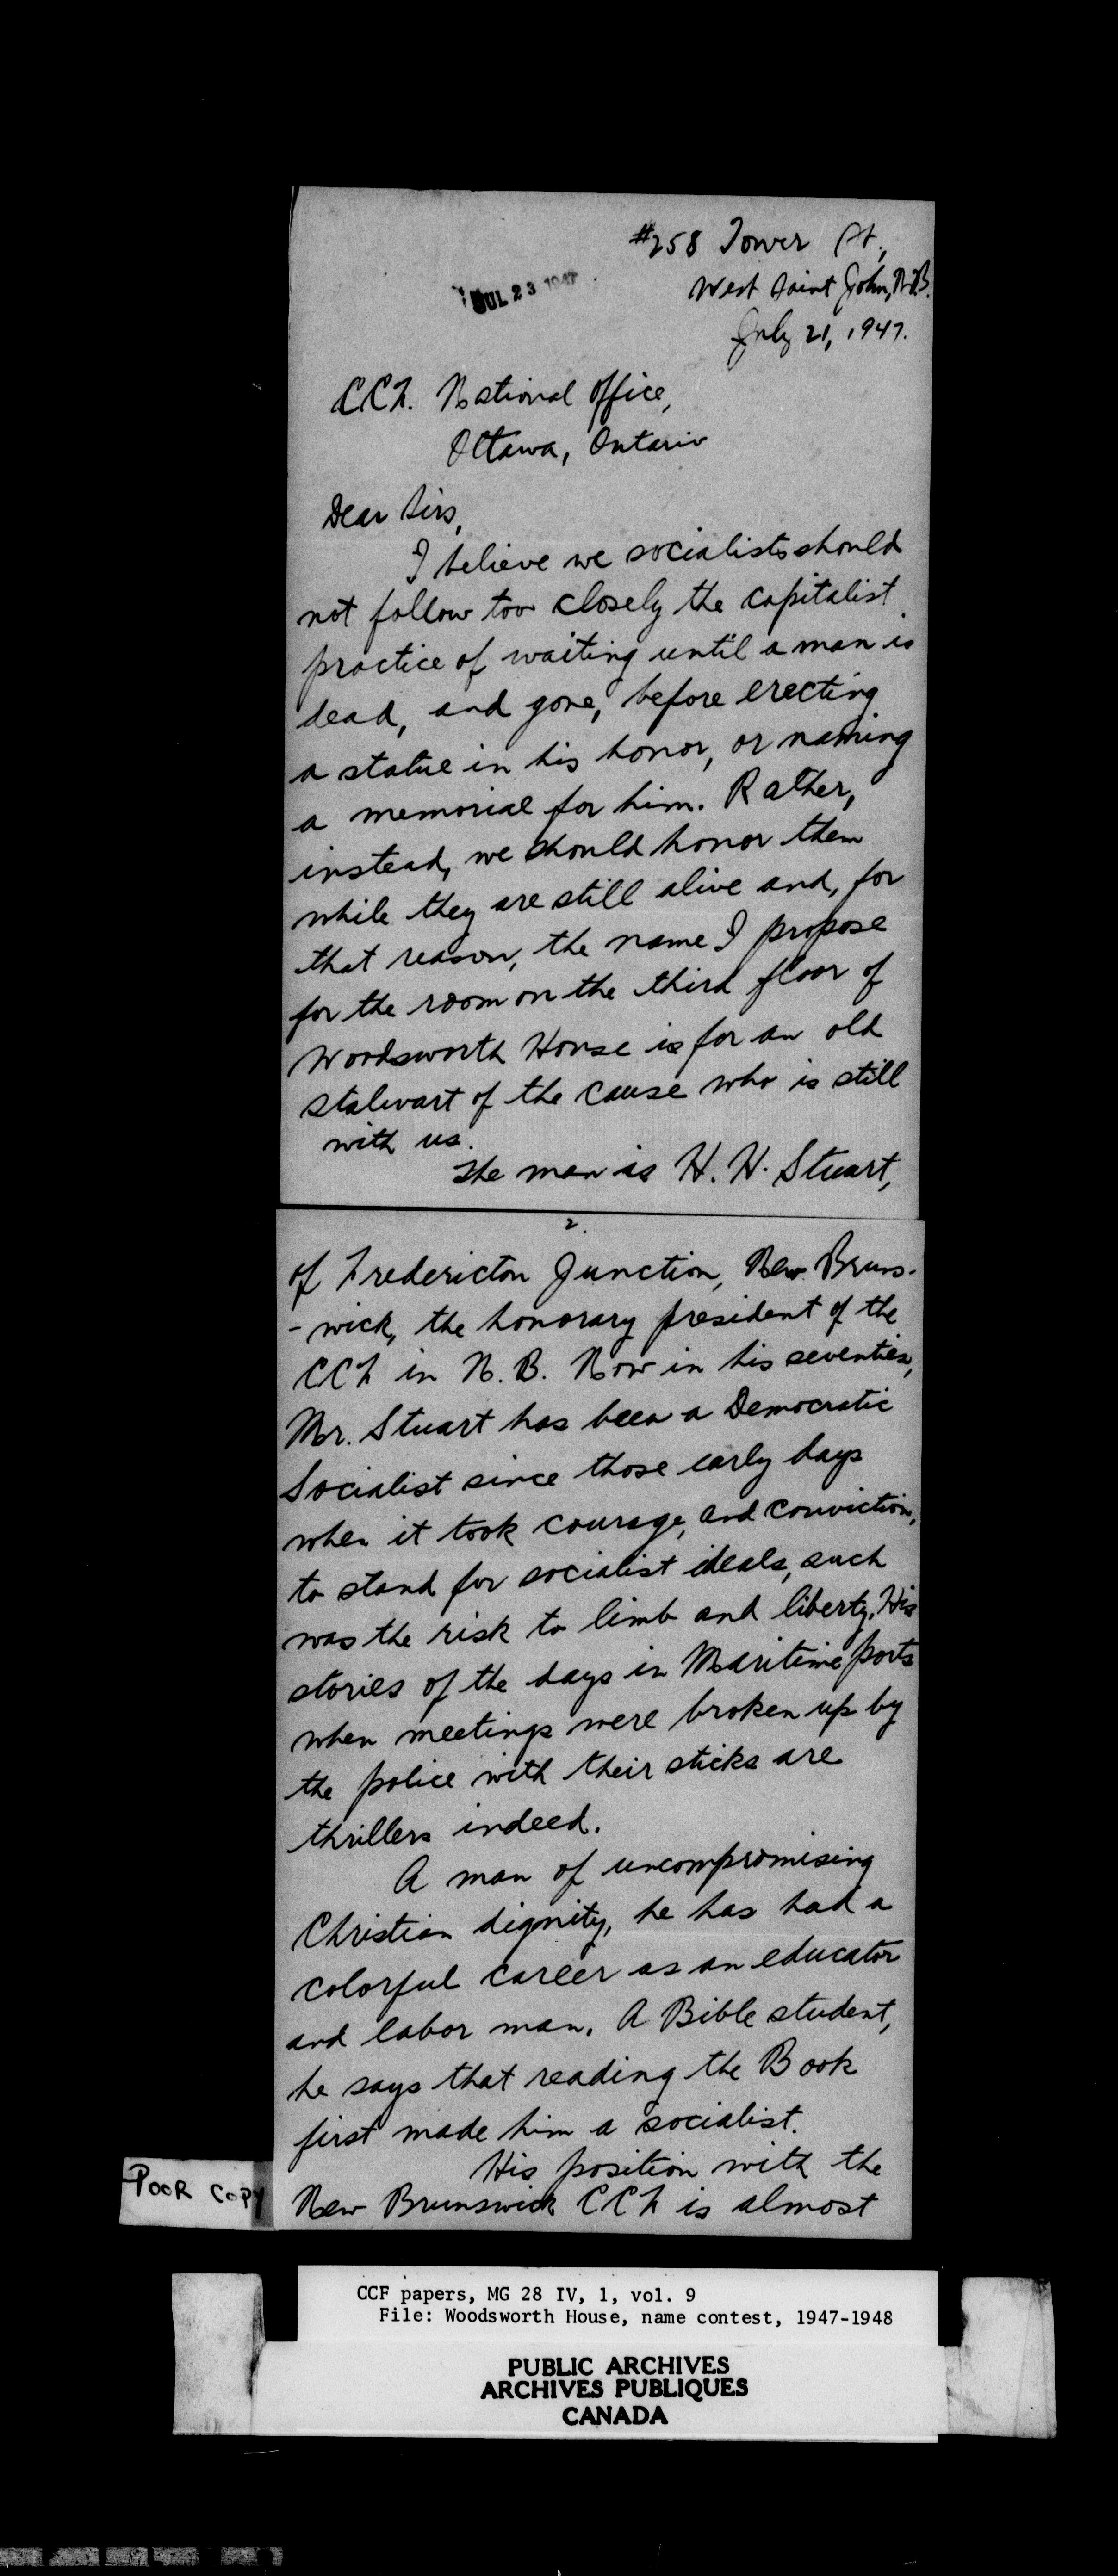 #258 Tower St.,
West Saint John, N.B.
JUL 23 1947
July 21, 1947.
CCF. National Office,
Ottawa, Ontario
Dear Sirs,
I believe we socialists should
not follow too closely the capitalist
practice of waiting until a man is
dead, and gone, before erecting
a statue in his honor, or naming
a memorial for him. Rather,
instead, we should honor them
while they are still alive and, for
that reason, the name I propose
for the room on the third floor of
Woodsworth House is for an old
stalwart of the cause who is still
with us.
The man is H. H. Stuart,
2.
of Fredericton Junction, New Bruns-
-wick, the honorary president of the
CCF in N. B. Now in his seventies,
Mr. Stuart has been a Democratic
Socialist since those early days
when it took courage, and conviction,
to stand for socialist ideals, such
was the risk to limb and liberty. His
stories of the days in Maritime ports
when meetings were broken up by
the police with their sticks are
thrillers indeed.
A man of uncompromising
Christian dignity, he has had a
colorful career as an educator
and labor man. A Bible student,
he says that reading the Book
first made him a socialist.
His position with the
New Brunswick CCF is almost
POOR COPY
CCF papers, MG 28 IV, 1, vol. 9
File: Woodsworth House, name contest, 1947-1948
PUBLIC ARCHIVES
ARCHIVES PUBLIQUES
CANADA